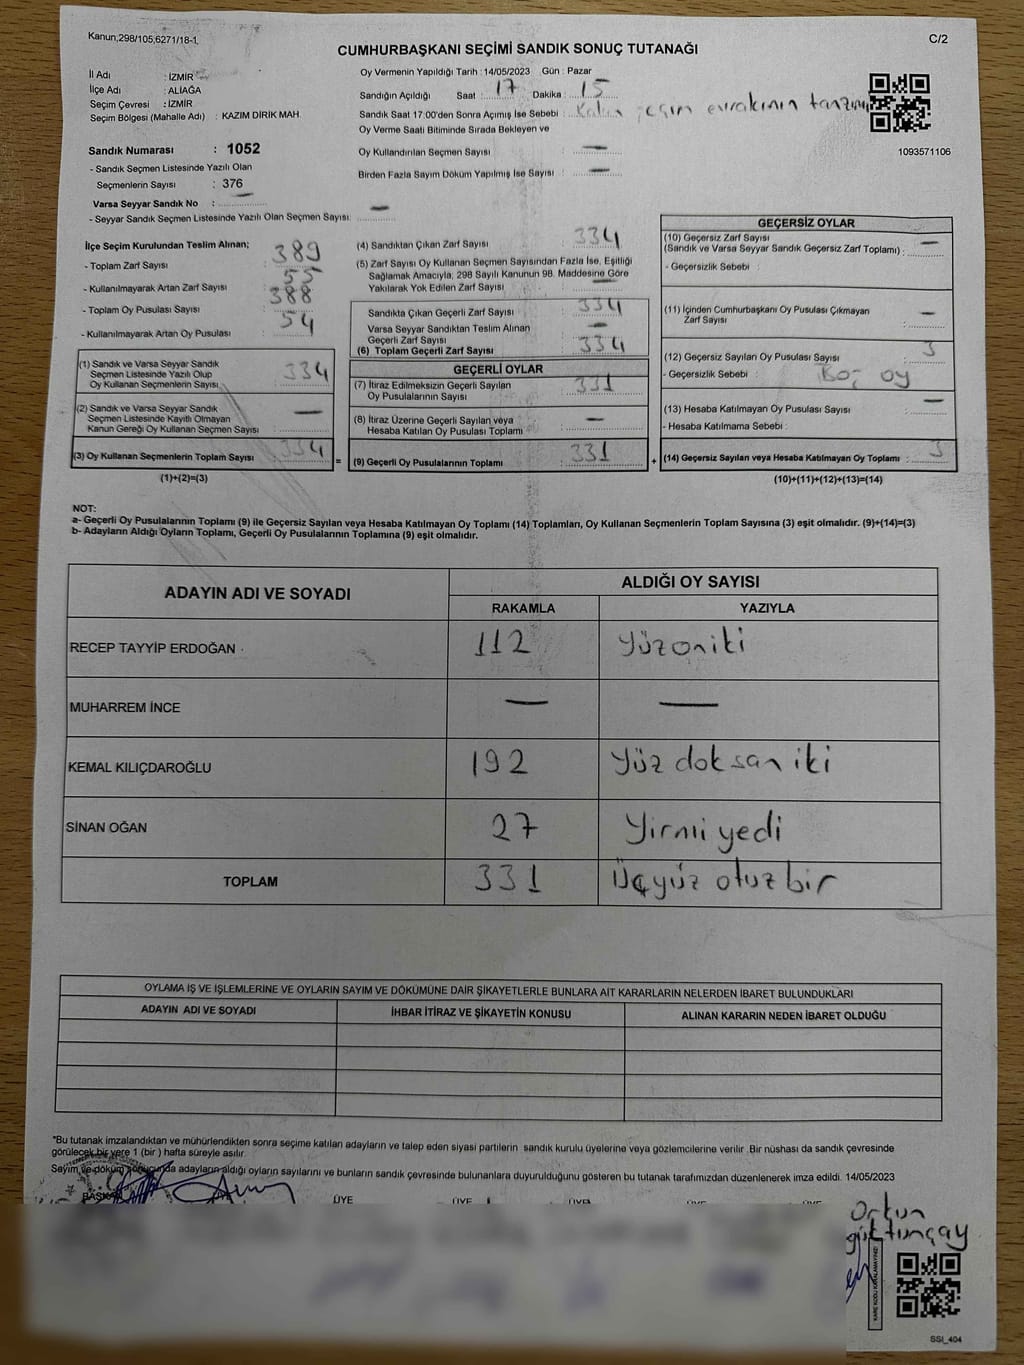 Kanun;298/105,6271/18-1,
C/2
CUMHURBAŞKANI SEÇİMİ SANDIK SONUÇ TUTANAĞI
İl Adı : İZMİR
İlçe Adı : ALİAĞA
Seçim Çevresi : İZMİR
Seçim Bölgesi (Mahalle Adı) : KAZIM DİRİK MAH.
Oy Vermenin Yapıldığı Tarih : 14/05/2023 Gün : Pazar
Sandığın Açıldığı Saat : 17 Dakika : 15
Sandık Saat 17:00'den Sonra Açımış İse Sebebi : Kalan seçim evrakının tanzimi
Oy Verme Saati Bitiminde Sırada Bekleyen ve
Oy Kullandırılan Seçmen Sayısı : —
Birden Fazla Sayım Döküm Yapılmış İse Sayısı : —
1093571106
Sandık Numarası : 1052
- Sandık Seçmen Listesinde Yazılı Olan
Seçmenlerin Sayısı : 376
Varsa Seyyar Sandık No : —
- Seyyar Sandık Seçmen Listesinde Yazılı Olan Seçmen Sayısı: —
İlçe Seçim Kurulundan Teslim Alınan;
- Toplam Zarf Sayısı : 389
- Kullanılmayarak Artan Zarf Sayısı : 55
- Toplam Oy Pusulası Sayısı : 388
- Kullanılmayarak Artan Oy Pusulası : 54
(1) Sandık ve Varsa Seyyar Sandık
Seçmen Listesinde Yazılı Olup
Oy Kullanan Seçmenlerin Sayısı : 334
(2) Sandık ve Varsa Seyyar Sandık
Seçmen Listesinde Kayıtlı Olmayan
Kanun Gereği Oy Kullanan Seçmen Sayısı : —
(3) Oy Kullanan Seçmenlerin Toplam Sayısı : 334
(1)+(2)=(3)
=
(4) Sandıktan Çıkan Zarf Sayısı : 334
(5) Zarf Sayısı Oy Kullanan Seçmen Sayısından Fazla İse, Eşitliği
Sağlamak Amacıyla, 298 Sayılı Kanunun 98. Maddesine Göre
Yakılarak Yok Edilen Zarf Sayısı : —
Sandıkta Çıkan Geçerli Zarf Sayısı : 334
Varsa Seyyar Sandıktan Teslim Alınan
Geçerli Zarf Sayısı : —
(6) Toplam Geçerli Zarf Sayısı : 334
GEÇERLİ OYLAR
(7) İtiraz Edilmeksizin Geçerli Sayılan
Oy Pusulalarının Sayısı : 331
(8) İtiraz Üzerine Geçerli Sayılan veya
Hesaba Katılan Oy Pusulası Toplamı : —
(9) Geçerli Oy Pusulalarının Toplamı : 331
+
GEÇERSİZ OYLAR
(10) Geçersiz Zarf Sayısı
(Sandık ve Varsa Seyyar Sandık Geçersiz Zarf Toplamı) : —
- Geçersizlik Sebebi :
(11) İçinden Cumhurbaşkanı Oy Pusulası Çıkmayan
Zarf Sayısı : —
(12) Geçersiz Sayılan Oy Pusulası Sayısı : 3
- Geçersizlik Sebebi : Boş oy
(13) Hesaba Katılmayan Oy Pusulası Sayısı : —
- Hesaba Katılmama Sebebi :
(14) Geçersiz Sayılan veya Hesaba Katılmayan Oy Toplamı : 3
(10)+(11)+(12)+(13)=(14)
NOT:
a- Geçerli Oy Pusulalarının Toplamı (9) ile Geçersiz Sayılan veya Hesaba Katılmayan Oy Toplamı (14) Toplamları, Oy Kullanan Seçmenlerin Toplam Sayısına (3) eşit olmalıdır. (9)+(14)=(3)
b- Adayların Aldığı Oyların Toplamı, Geçerli Oy Pusulalarının Toplamına (9) eşit olmalıdır.
ADAYIN ADI VE SOYADI
ALDIĞI OY SAYISI
RAKAMLA YAZIYLA
RECEP TAYYİP ERDOĞAN 112 Yüzoniki
MUHARREM İNCE — —
KEMAL KILIÇDAROĞLU 192 Yüz doksan iki
SİNAN OĞAN 27 Yirmi yedi
TOPLAM 331 Üçyüz otuz bir
OYLAMA İŞ VE İŞLEMLERİNE VE OYLARIN SAYIM VE DÖKÜMÜNE DAİR ŞİKAYETLERLE BUNLARA AİT KARARLARIN NELERDEN İBARET BULUNDUKLARI
ADAYIN ADI VE SOYADI İHBAR İTİRAZ VE ŞİKAYETİN KONUSU ALINAN KARARIN NEDEN İBARET OLDUĞU
*Bu tutanak imzalandıktan ve mühürlendikten sonra seçime katılan adayların ve talep eden siyasi partilerin sandık kurulu üyelerine veya gözlemcilerine verilir. Bir nüshası da sandık çevresinde
görülecek bir yere 1 (bir ) hafta süreyle asılır.
Sayım ve döküm sonucunda adayların aldığı oyların sayılarını ve bunların sandık çevresinde bulunanlara duyurulduğunu gösteren bu tutanak tarafımızdan düzenlenerek imza edildi. 14/05/2023
BAŞKAN ÜYE ÜYE ÜYE ÜYE ÜYE
Orkun
göktunçay
KARE KODU KARALAMAYINIZ!
SSI_404